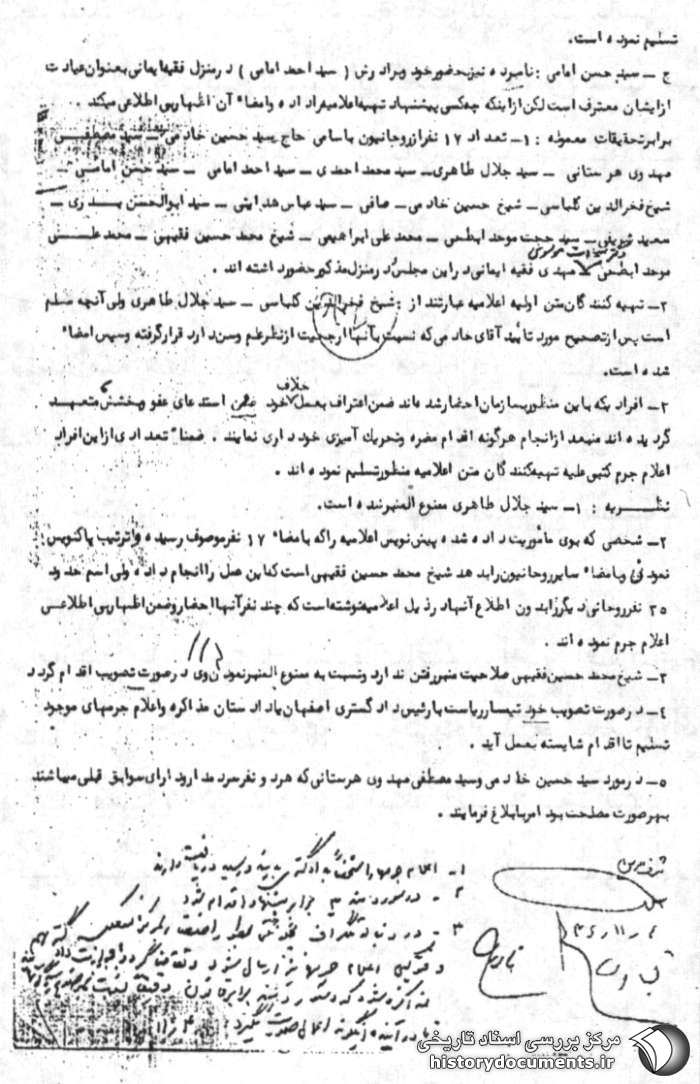 تسلیم نموده است.
ج ـ سید حسن امامی : نامبرده نیز بحضور خود و برادرش ( سید احمد امامی ) در منزل فقیه ایمانی بعنوان عیادت
از ایشان معترف است لکن از اینکه چه کسی پیشنهاد تهیه اعلامیه را داده و امضاء آن اظهار بی اطلاعی میکند .
برابر تحقیقات معموله : ۱ـ تعداد ۱۷ نفر از روحانیون باسامی حاج سید حسین خادمی ـ سید مصطفی
مهدوی هرستانی ـ سید جلال طاهری ـ سید محمد احمدی ـ سید احمد امامی ـ سید حسن امامی ـ
شیخ فخرالدین کلباسی ـ شیخ حسین خادمی ـ صافی ـ سید عباس هدایتی ـ سید ابوالحسن بدری ـ
سعید ـ سید حجت موحد ابطحی ـ محمد علی ابراهیمی ـ شیخ محمد حسین فقیهی ـ محمد علی
موحد ابطحی ـ مهدی فقیه ایمانی در این مجلس در منزل مذکور حضور داشته اند .
۲ـ تهیه کنندگان متن اولیه اعلامیه عبارتند از : شیخ فخرالدین کلباسی ـ سید جلال طاهری ولی آنچه مسلم
است پس از تصحیح مورد تأیید آقای خادمی که نسبت بآنها ارجحیت از نظر علم و سن دارد قرار گرفته و سپس امضاء
شده است.
۲ـ افرادیکه باین منظور بسازمان احضار شده اند ضمن اعتراف بعمل خلاف خود ضمن استدعای عفو و بخشش متعهد
گردیده اند منبعد از انجام هرگونه اقدام مضره و تحریک آمیزی خودداری نمایند . ضمناً تعدادی از این افراد
اعلام جرم کتبی علیه تهیه کنندگان متن اعلامیه منظور تسلیم نموده اند .
نظریه : ۱ـ سید جلال طاهری ممنوع المنبر نده است.
۲ـ شخصی که بوی مأموریت داده شده پیش نویس اعلامیه را که بامضاء ۱۷ نفر موصوف رسیده و اترتیب پاکنویس
نموده و بامضاء سایر روحانیون رابدهد شیخ محمد حسین فقیهی است که این عمل را انجام داده ولی اسم حدود
۳۵ نفر روحانی دیگر را بدون اطلاع آنها در ذیل اعلامیه نوشته است که چند نفر آنها احضار و ضمن اظهار بی اطلاعی
اعلام جرم نموده اند .
۳ـ شیخ محمد حسین فقیهی صلاحیت منبر رفتن ندارد و نسبت به ممنوع المنبر نمودن وی در صورت تصویب اقدام گردد
٤ـ در صورت تصویب خود تیمسار ریاست با رئیس دادگستری اصفهان یا دادستان مذاکره و اعلام جرمهای موجود
تسلیم تا اقدام شایسته بعمل آید .
۵ـ در مورد سید حسین خادمی و سید مصطفی مهدوی هرستانی که هر دو نفر سرمد ارود ارای سوابق قبلی میباشند
بهر صورت مصلحت بود امر بابلاغ فرمایند .
۱ـ اعلام جرمها
۲ـ در مورد بند ۳ برابر پیشنهاد اقدام شود
۳ـ در دنباله تلگراف
و فتوکپی اعلام جرمها نیز ارسال شود و تقاضا گردد
۴ر۱۱ر۳۶
مرکز بررسی اسناد تاریخی
historydocuments.ir